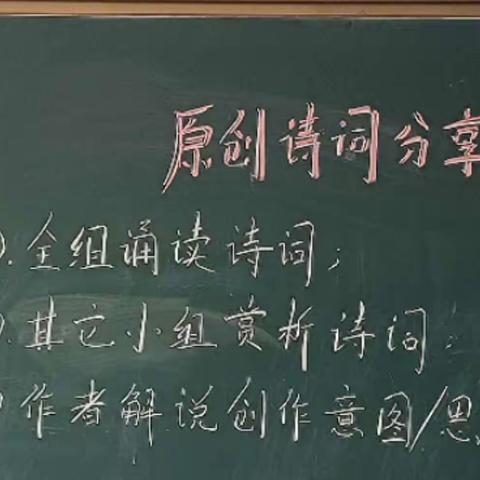 原创诗词分享
全组诵读诗词;
其它小组赏析诗词;
作者解说创作意图/思